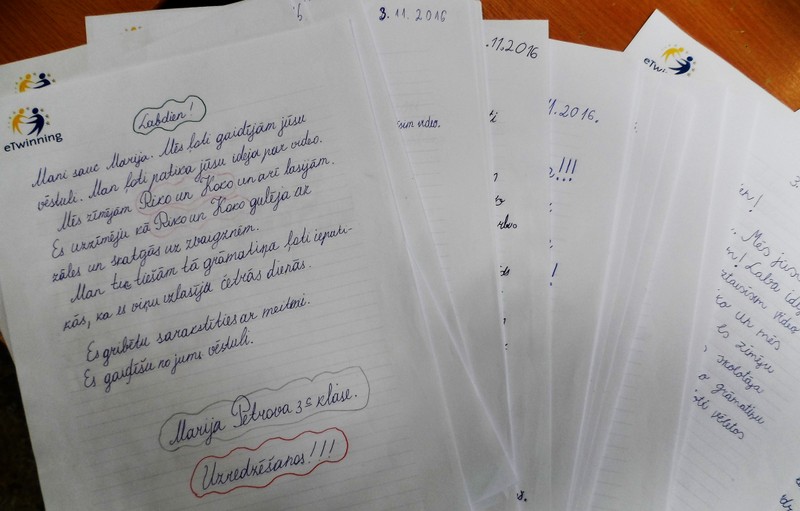 eTwinning
Labdien!
Mani sauc Marija. Mēs ļoti gaidījām jūsu
vēstuli. Man ļoti patika jūsu ideja par video.
Mēs zīmējām Riko un Koko un arī lasījām.
Es uzzīmēju kā Riko un Koko gulēja
zāles un skatījās uz zvaigznēm.
Man tiešām tā grāmatiņa ļoti iepati-
kās, ka es viņu izlasīja četrās dienās.
Es gribētu sarakstīties ar meiteni.
Es gaidīšu no jums vēstuli.
Marija Petrova 3c klase.
Uzredzēšanos!!!
3.11.2016
video.
.11.2016
11.2016.
!!!
!
eTwi
!
Mēs
! Laba
video
un mēs
Es zīmēju
skolotāja
grāmatiņu
vēlētos